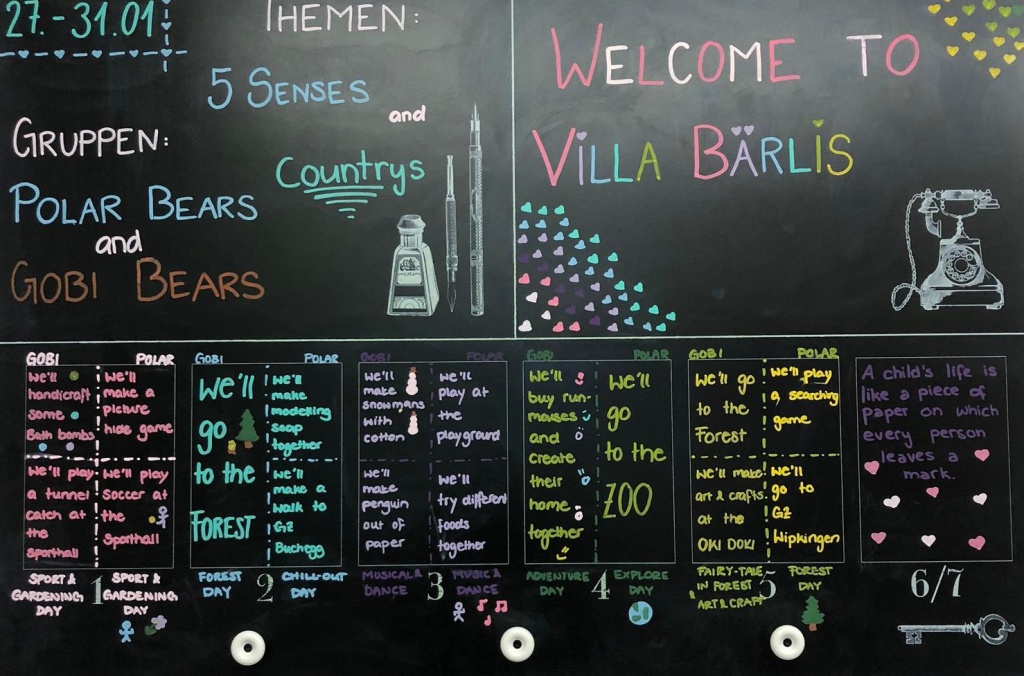 27.-31.01
THEMEN:
5 SENSES
and
Countrys
GRUPPEN:
POLAR BEARS
and
GOBI BEARS
WELCOME TO
VILLA BÄRLIS
GOBI POLAR
we'll
handicraft
some
Bath bombs
we'll
make a
picture
hide game
we'll play
a tunnel
catch at
the
sporthall
we'll play
soccer at
the
Sporthall
SPORT &
GARDENING
DAY
1
SPORT &
GARDENING
DAY
GOBI POLAR
we'll
go
to the
FOREST
we'll
make
modelling
soap
together
we'll
make a
walk to
GZ
Buchegg
FOREST
DAY
2
CHILL-OUT
DAY
GOBI POLAR
we'll
make
snowmans
with
cotton
we'll
play at
the
playground
we'll
make
penguin
out of
paper
we'll
try different
foods
together
MUSICAL&
DANCE
3
MUSIC&
DANCE
GOBI POLAR
we'll
buy run-
mouses
and
create
their
home
together
we'll
go
to the
ZOO
ADVENTURE
DAY
4
EXPLORE
DAY
GOBI POLAR
we'll go
to the
Forest
we'll play
a searching
game
we'll make
art & crafts
at the
OKI DOKI
we'll
go to
GZ
Wipkingen
FAIRY-TALE
IN FOREST
& ART & CRAFT
5
FOREST
DAY
A child's life is
like a piece of
paper on which
every person
leaves a
mark.
6/7